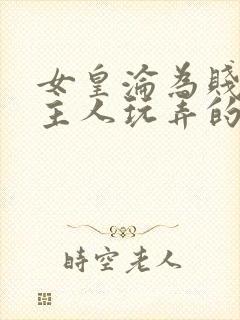 女皇淪為賤
主人玩弄的
時空老人